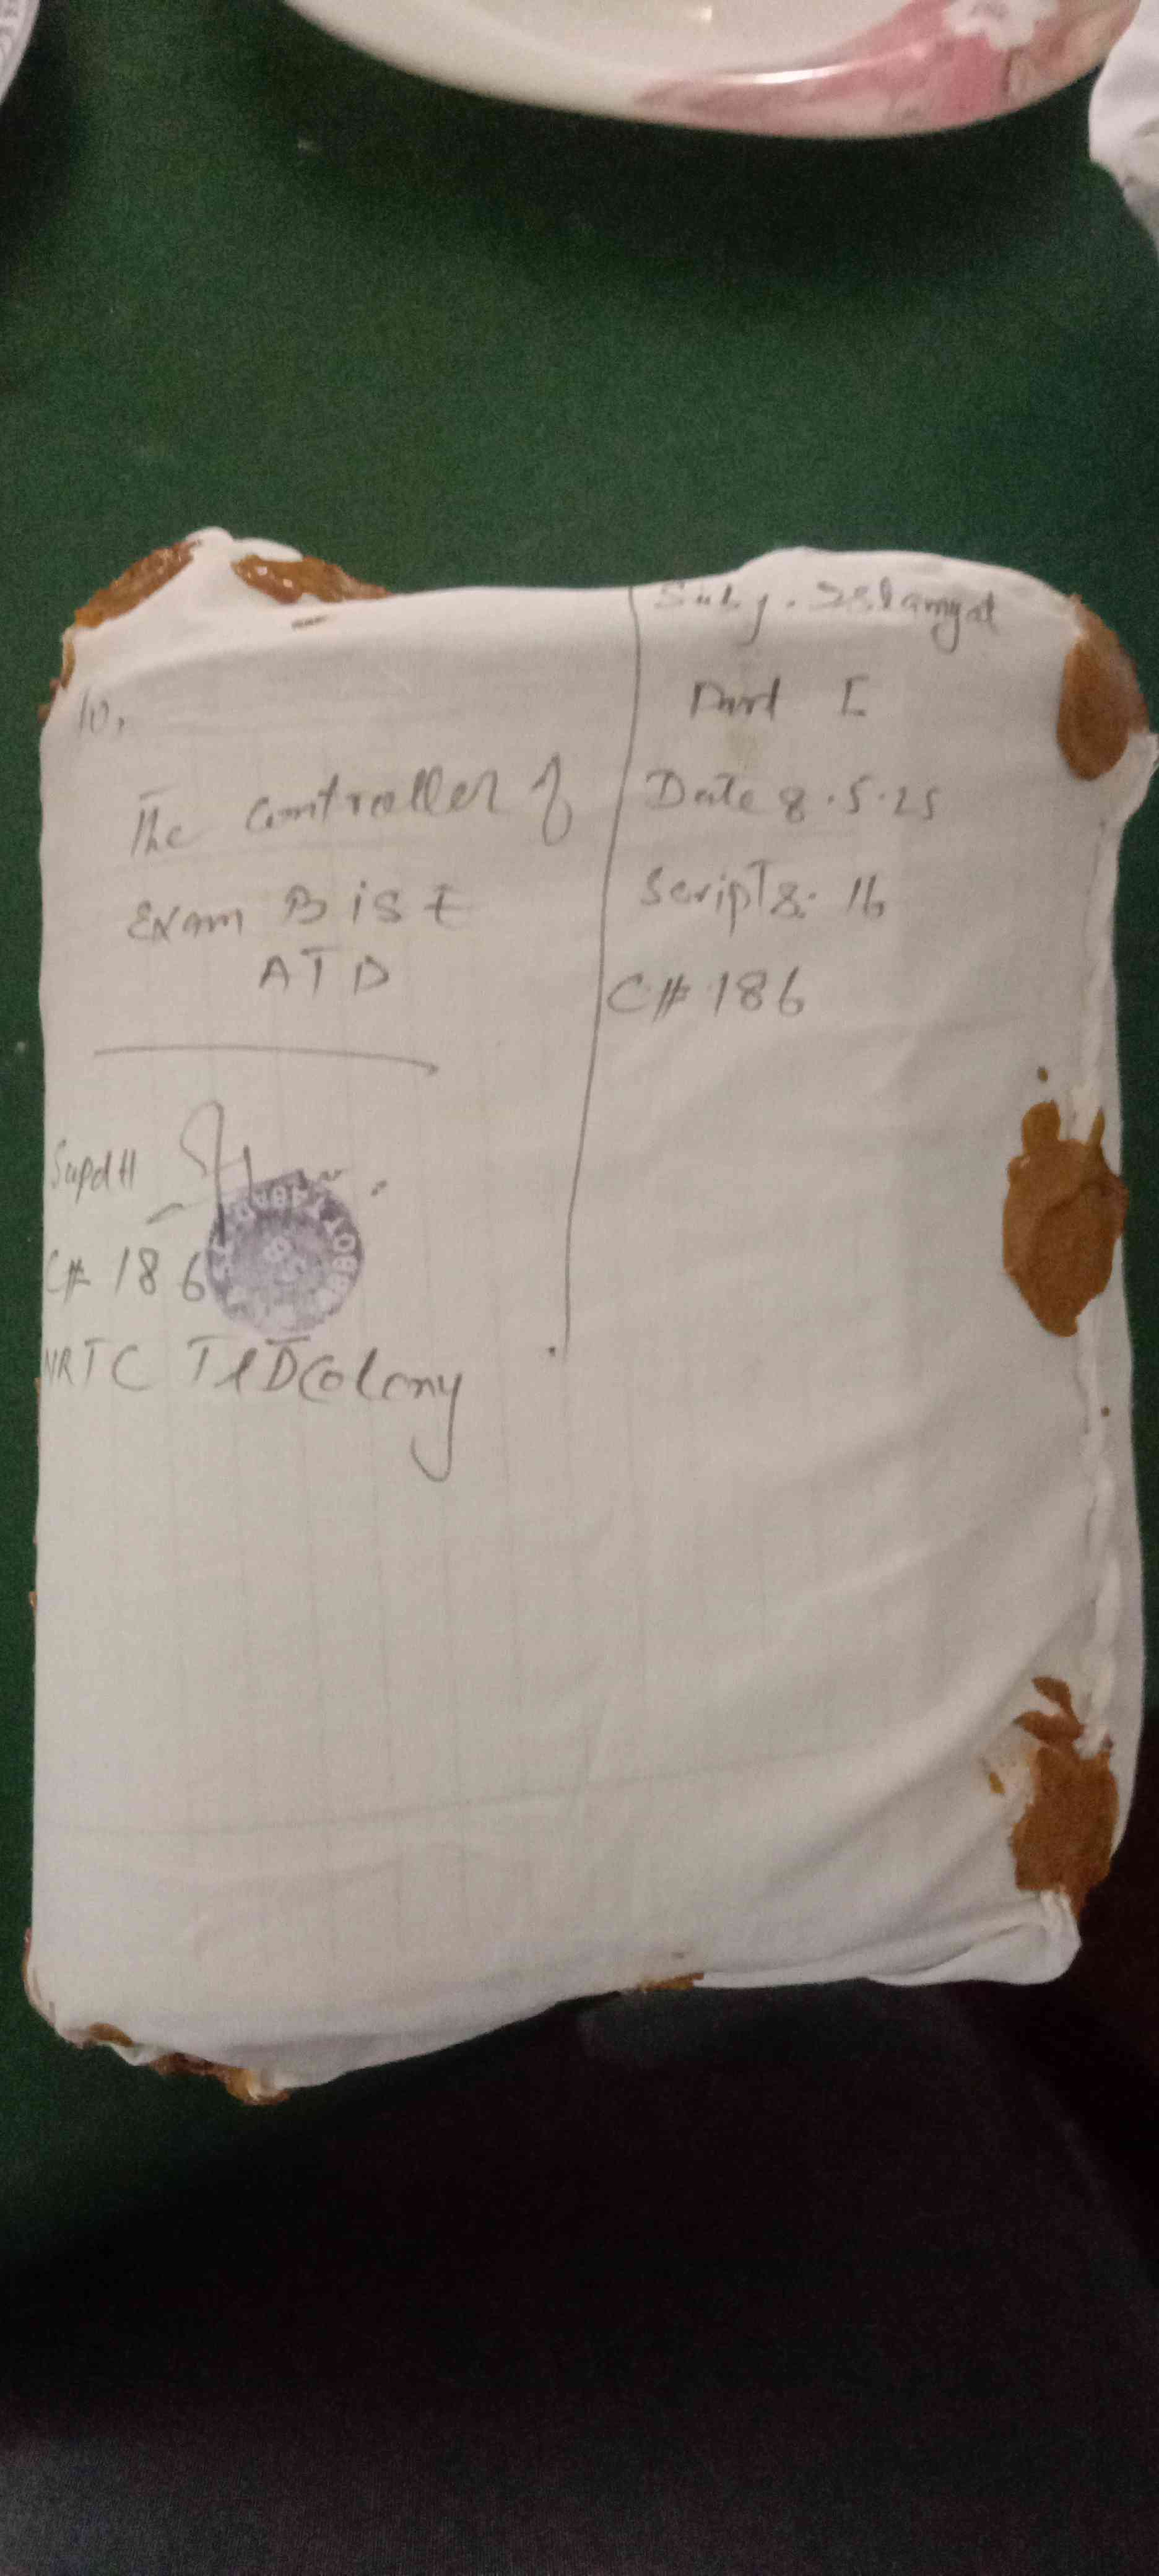 To,
The Controller of
Exam B i S E
ATD
Supdtt
C# 186
NRTC T&D Colony
Subj. Islamyat
Part I
Date 8.5.25
Scripts: 16
C# 186